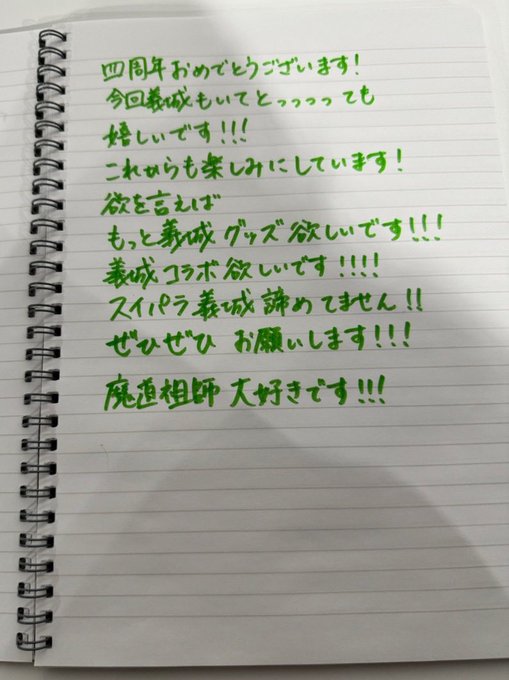 四周年おめでとうございます!
今回義城もいてとっっっっても
嬉しいです!!!
これからも楽しみにしています!
欲を言えば
もっと義城グッズ欲しいです!!!
義城コラボ欲しいです!!!!
スイパラ義城諦めてません!!
ぜひぜひ お願いします!!!
魔道祖師 大好きです!!!